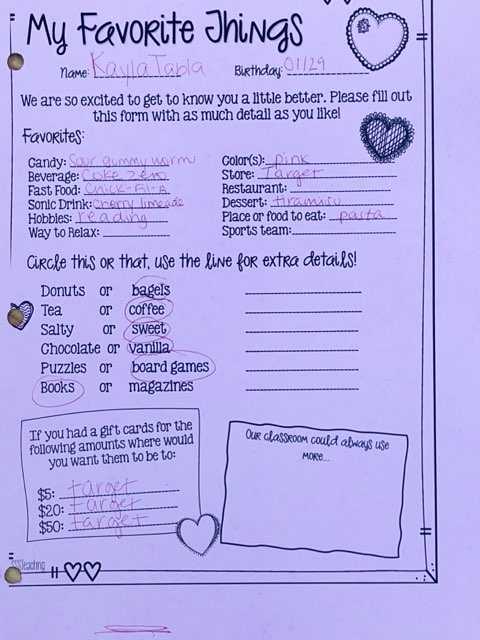 My Favorite Things
Name: Kayla Tabla Birthday: 01/29
We are so excited to get to know you a little better. Please fill out
this form with as much detail as you like!
Favorites:
Candy: Sour gummy worm
Beverage: Coke zero
Fast Food: Chick-Fil-A
Sonic Drink: Cherry limeade
Hobbies: reading
Way to Relax:
Color(s): pink
Store: Target
Restaurant:
Dessert: tiramisu
Place or food to eat: pasta
Sports team:
Circle this or that, use the line for extra details!
Donuts or bagels
Tea or coffee
Salty or sweet
Chocolate or vanilla
Puzzles or board games
Books or magazines
If you had a gift cards for the
following amounts where would
you want them to be to:
$5: target
$20: target
$50: target
Our classroom could always use
more...